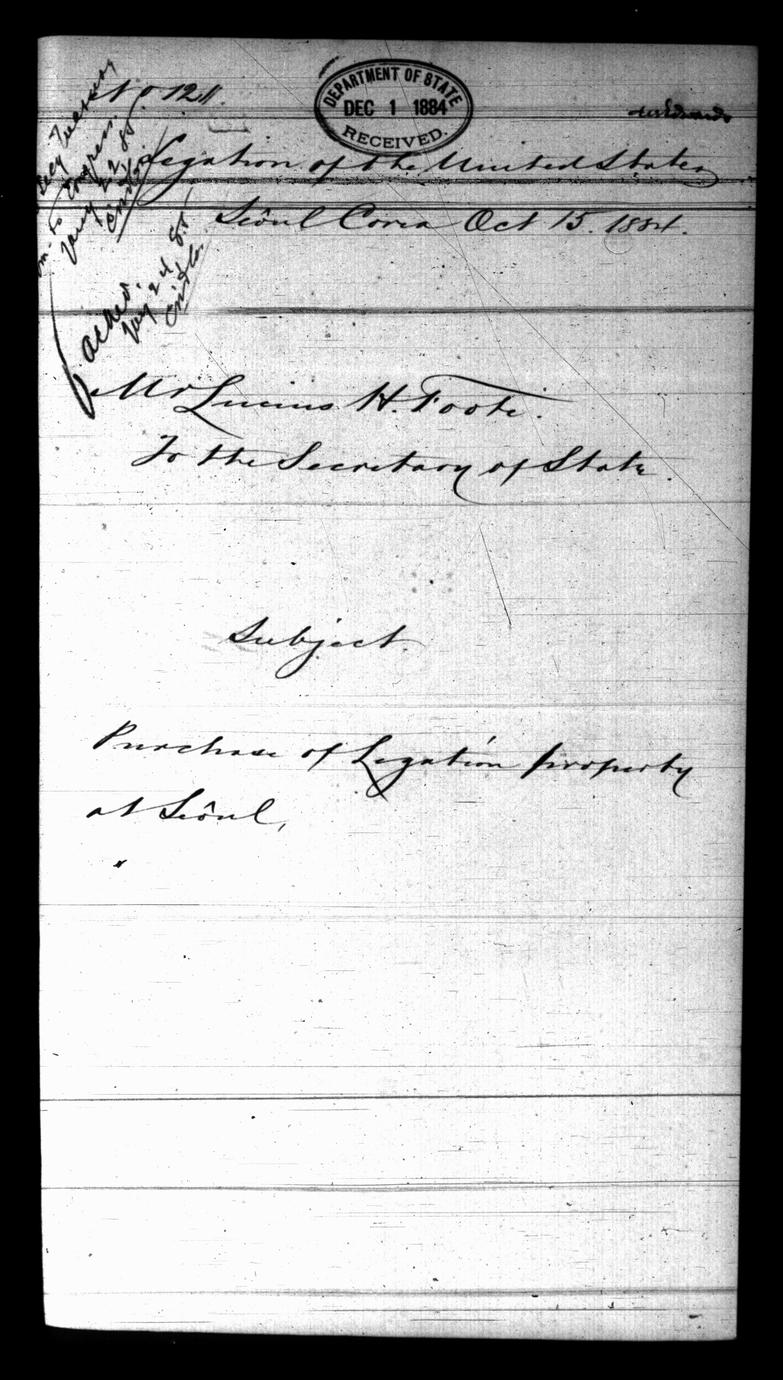 No 121.
DEPARTMENT OF STATE
DEC 1 1884
RECEIVED.
Legation of the United States
Seôul Corea Oct 15. 1884.
Secy Treasury
to Congress.
Jany 22. 85.
Ack'd.
Jany 24 85
Mr Lucius H. Foote.
To the Secretary of State.
Subject.
Purchase of Legation property
at Seôul,